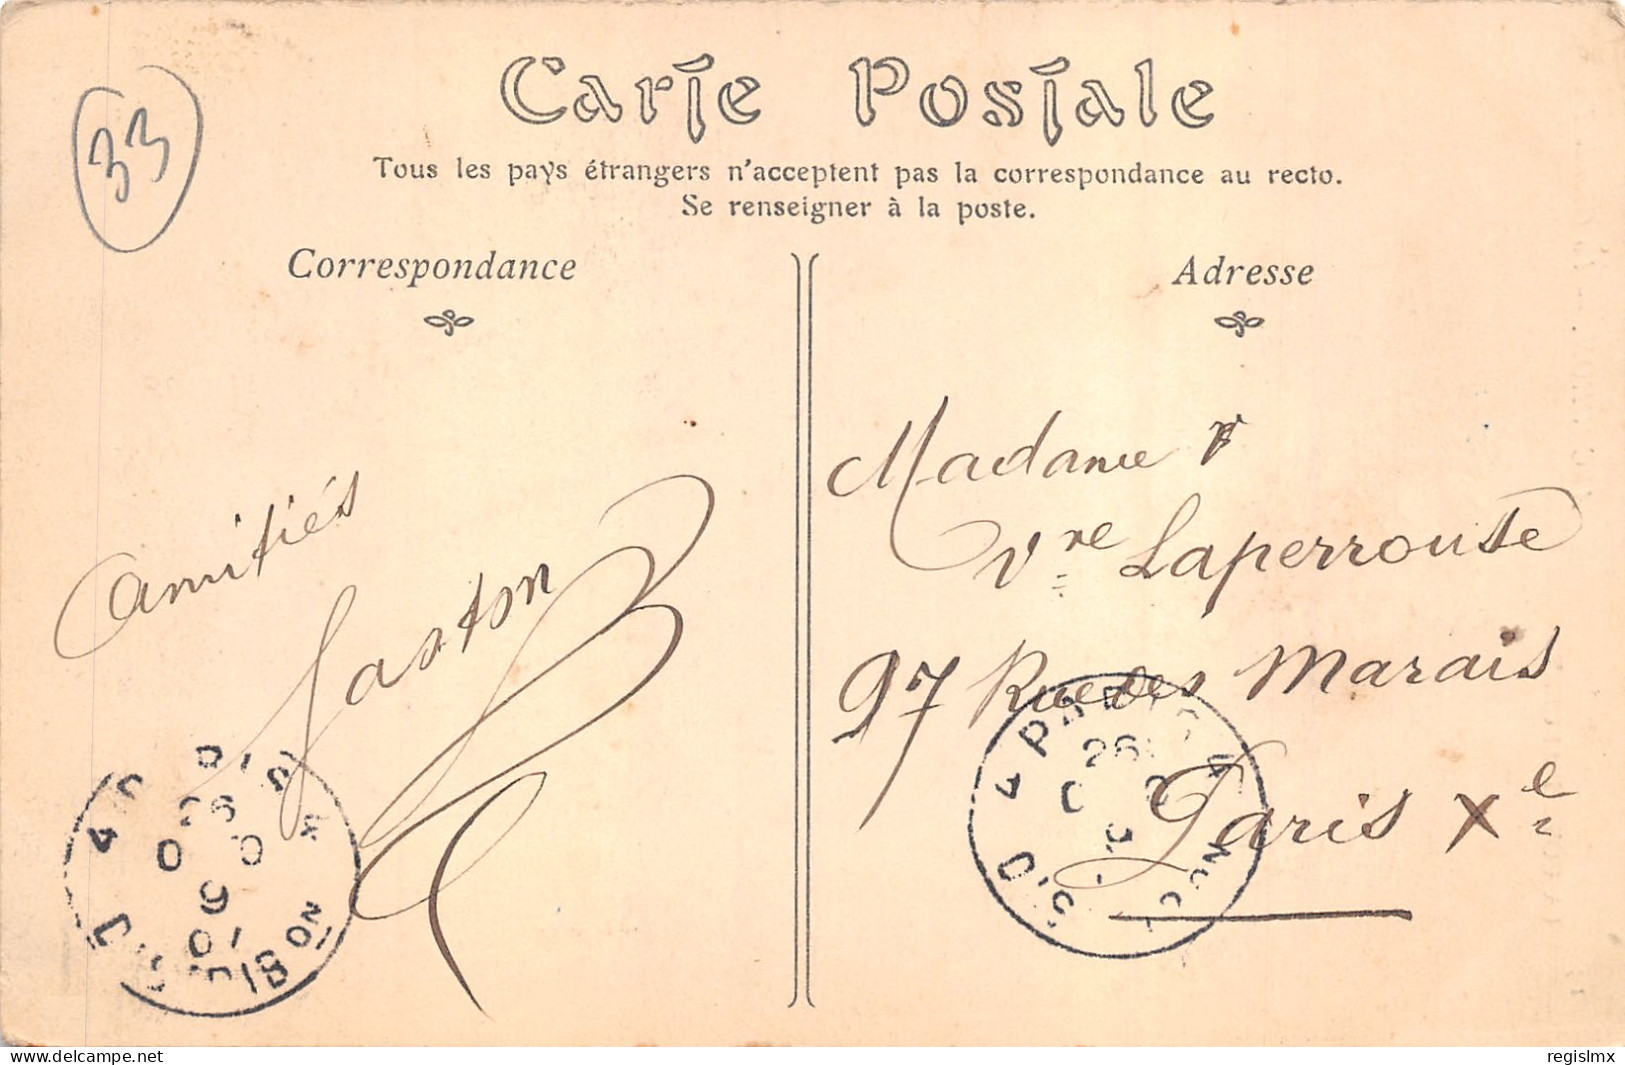 33
Carte Postale
Tous les pays étrangers n'acceptent pas la correspondance au recto.
Se renseigner à la poste.
Correspondance
Adresse
Amitiés
Gaston
Madame
Vve Laperrouse
97 Rue des Marais
Paris Xe
PARIS
26
DISTRIBUTION
26
www.delcampe.net
regislmx